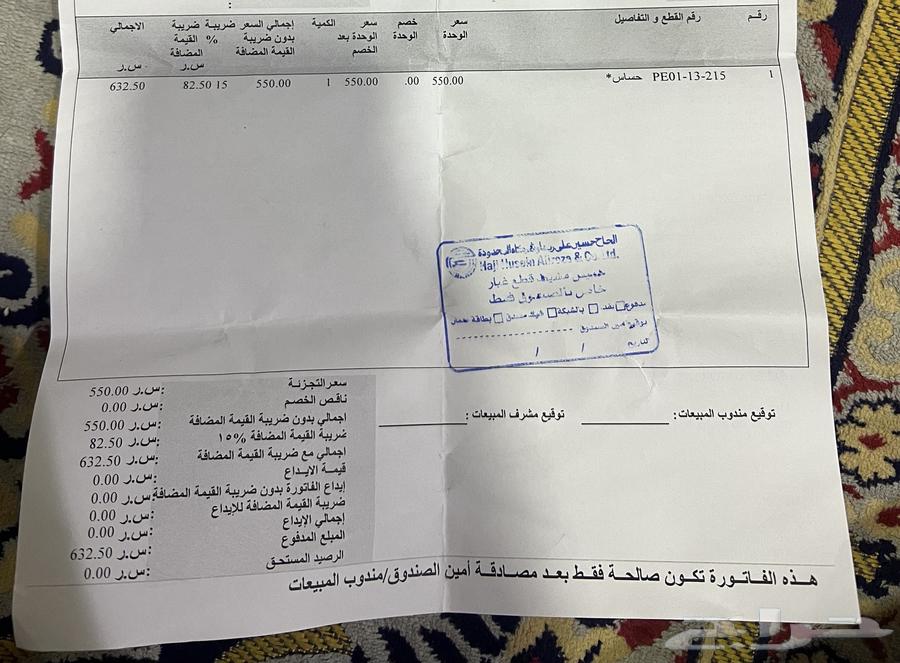 :
رقم رقم القطع و التفاصيل سعر الوحدة خصم الوحدة سعر الوحدة بعد الخصم الكمية إجمالي السعر بدون ضريبة القيمة المضافة ضريبة % ضريبة القيمة المضافة س.ر الاجمالي س.ر
1 PE01-13-215 حساس* 550.00 .00 550.00 1 550.00 15 82.50 632.50
الحاج حسين علي رضا وشركاه المحدودة
Haji Husein Alireza & Co. Ltd.
خميس مشيط قطع غيار
خاص بالصندوق فقط
مدفوع نقد بالشبكة شيك مستحق بطاقة
توقيع امين الصندوق
التاريخ / /
سعر التجزئة :س.ر 550.00
ناقص الخصم :س.ر 0.00
اجمالي بدون ضريبة القيمة المضافة :س.ر 550.00
ضريبة القيمة المضافة ١٥% :س.ر 82.50
إجمالي مع ضريبة القيمة المضافة :س.ر 632.50
قيمة الايداع :س.ر 0.00
إيداع الفاتورة بدون ضريبة القيمة المضافة :س.ر 0.00
ضريبة القيمة المضافة للإيداع :س.ر 0.00
إجمالي الإيداع :س.ر 0.00
المبلغ المدفوع :س.ر 632.50
الرصيد المستحق :س.ر 0.00
توقيع مندوب المبيعات: توقيع مشرف المبيعات:
هذه الفاتورة تكون صالحة فقط بعد مصادقة أمين الصندوق/مندوب المبيعات
حراج